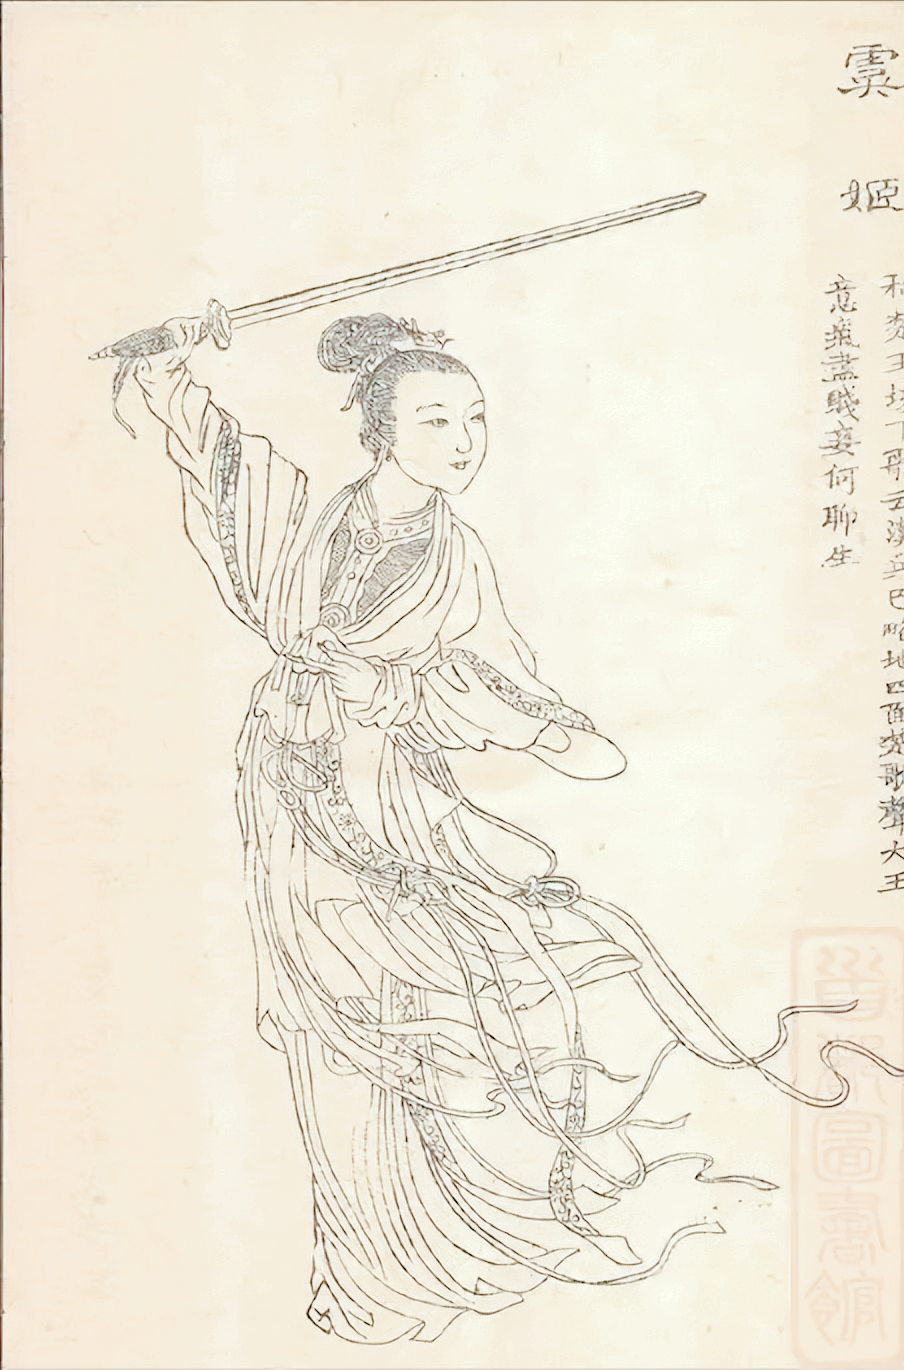 虞姬
和楚王垓下歌云漢兵已略地四面楚歌聲大王
意氣盡賤妾何聊生
首都圖書館